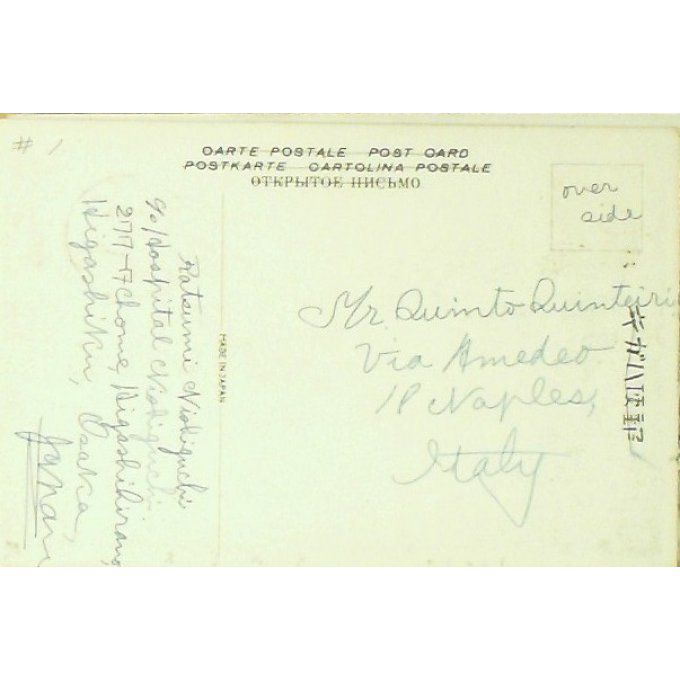 # 1
CARTE POSTALE POST CARD
POSTKARTE CARTOLINA POSTALE
ОТКРЫТОЕ ПИСЬМО
over
side
Mr. Quinto Quinteiri
Via Amedeo
18 Naples,
Italy
MADE IN JAPAN
Ratsumi Nishiguchi
c/o Hospital Nishiguchi
Chome, Higashihirano,
Higashiku, Osaka,
Japan